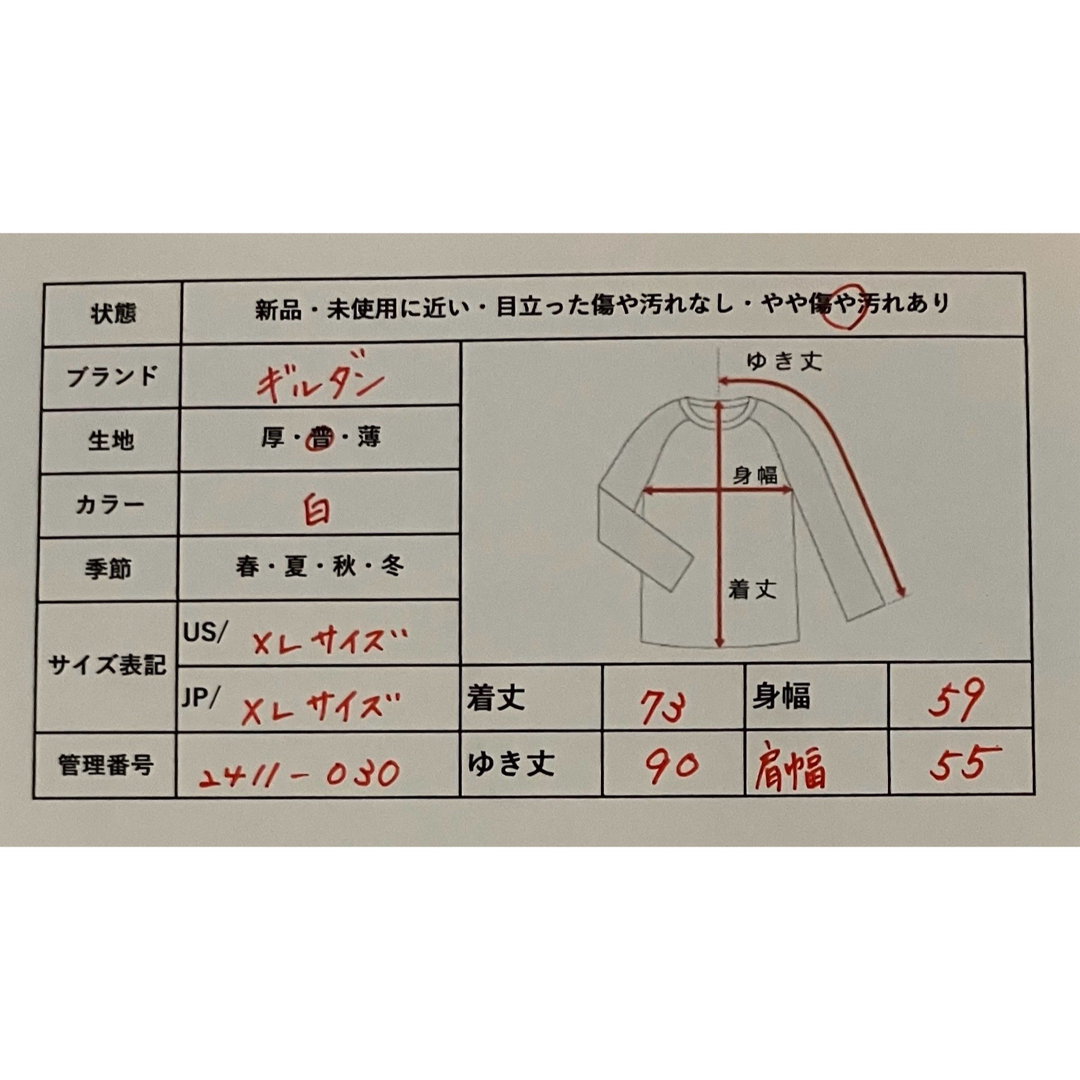 状態 新品・未使用に近い・目立った傷や汚れなし・やや傷や汚れあり
ブランド ギルダン
生地 厚・普・薄
カラー 白
季節 春・夏・秋・冬
サイズ表記 US/ XLサイズ
JP/ XLサイズ
管理番号 2411-030
ゆき丈
身幅
着丈
着丈 73 身幅 59
ゆき丈 90 肩幅 55